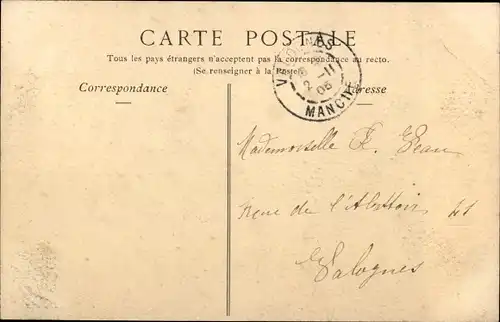 CARTE POSTALE
Tous les pays étrangers n'acceptent pas la correspondance au recto.
(Se renseigner à la Poste)
Correspondance
Adresse
VALOGNES
2 -11
05
MANCHE
Mademoiselle
Rue de l'Abattoir
Valognes